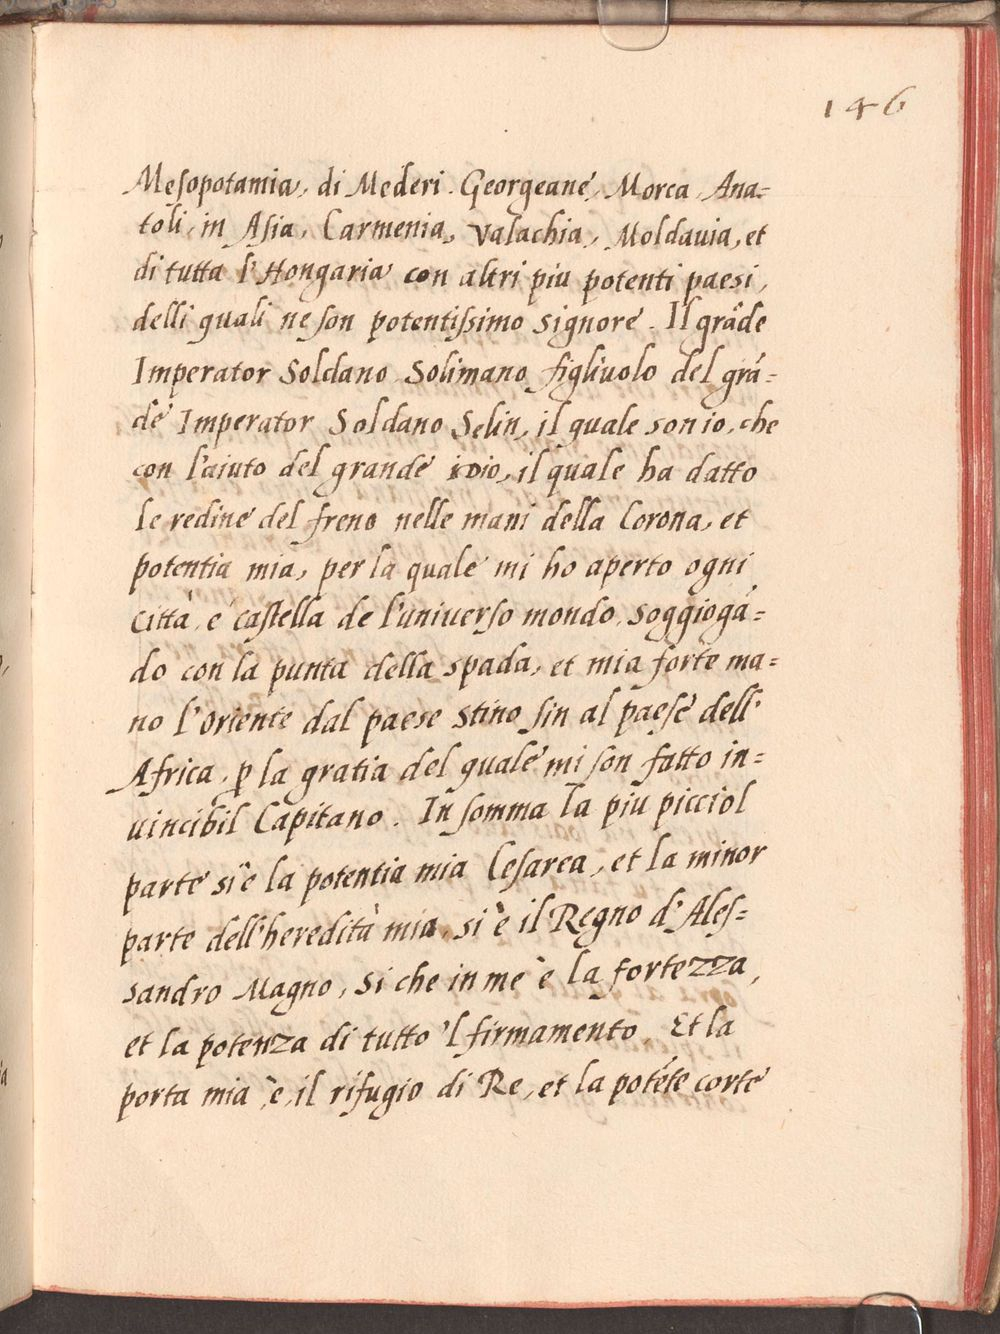 146
Mesopotamia, di Mederi. Georgeane, Morea, Ana=
toli, in Asia, Carmenia, Valachia, Moldauia, et
di tutta l'Hongaria con altri piu potenti paesi,
delli quali ne son potentissimo signore. Il grãde
Imperator Soldano Solimano figliuolo del grã=
de Imperator Soldano Selin, il quale son io, che
con l'aiuto del grande idio, il quale ha datto
le redine del freno nelle mani della Corona, et
potentia mia, per la quale mi ho aperto ogni
Città, e castella de l'uniuerso mondo, soggiogã=
do con la punta della spada, et mia forte ma=
no l'Oriente dal paese Stino sin al paese dell'
Africa, ꝑ la gratia del quale mi son fatto in=
uincibil Capitano. In somma la piu picciol
parte si è la potentia mia Cesarea, et la minor
parte dell'heredità mia, si è il Regno d'Ales=
sandro Magno, Si che in me è la fortezza,
et la potenza di tutto 'l firmamento. Et la
porta mia è, il rifugio di Re, et la potẽte corte